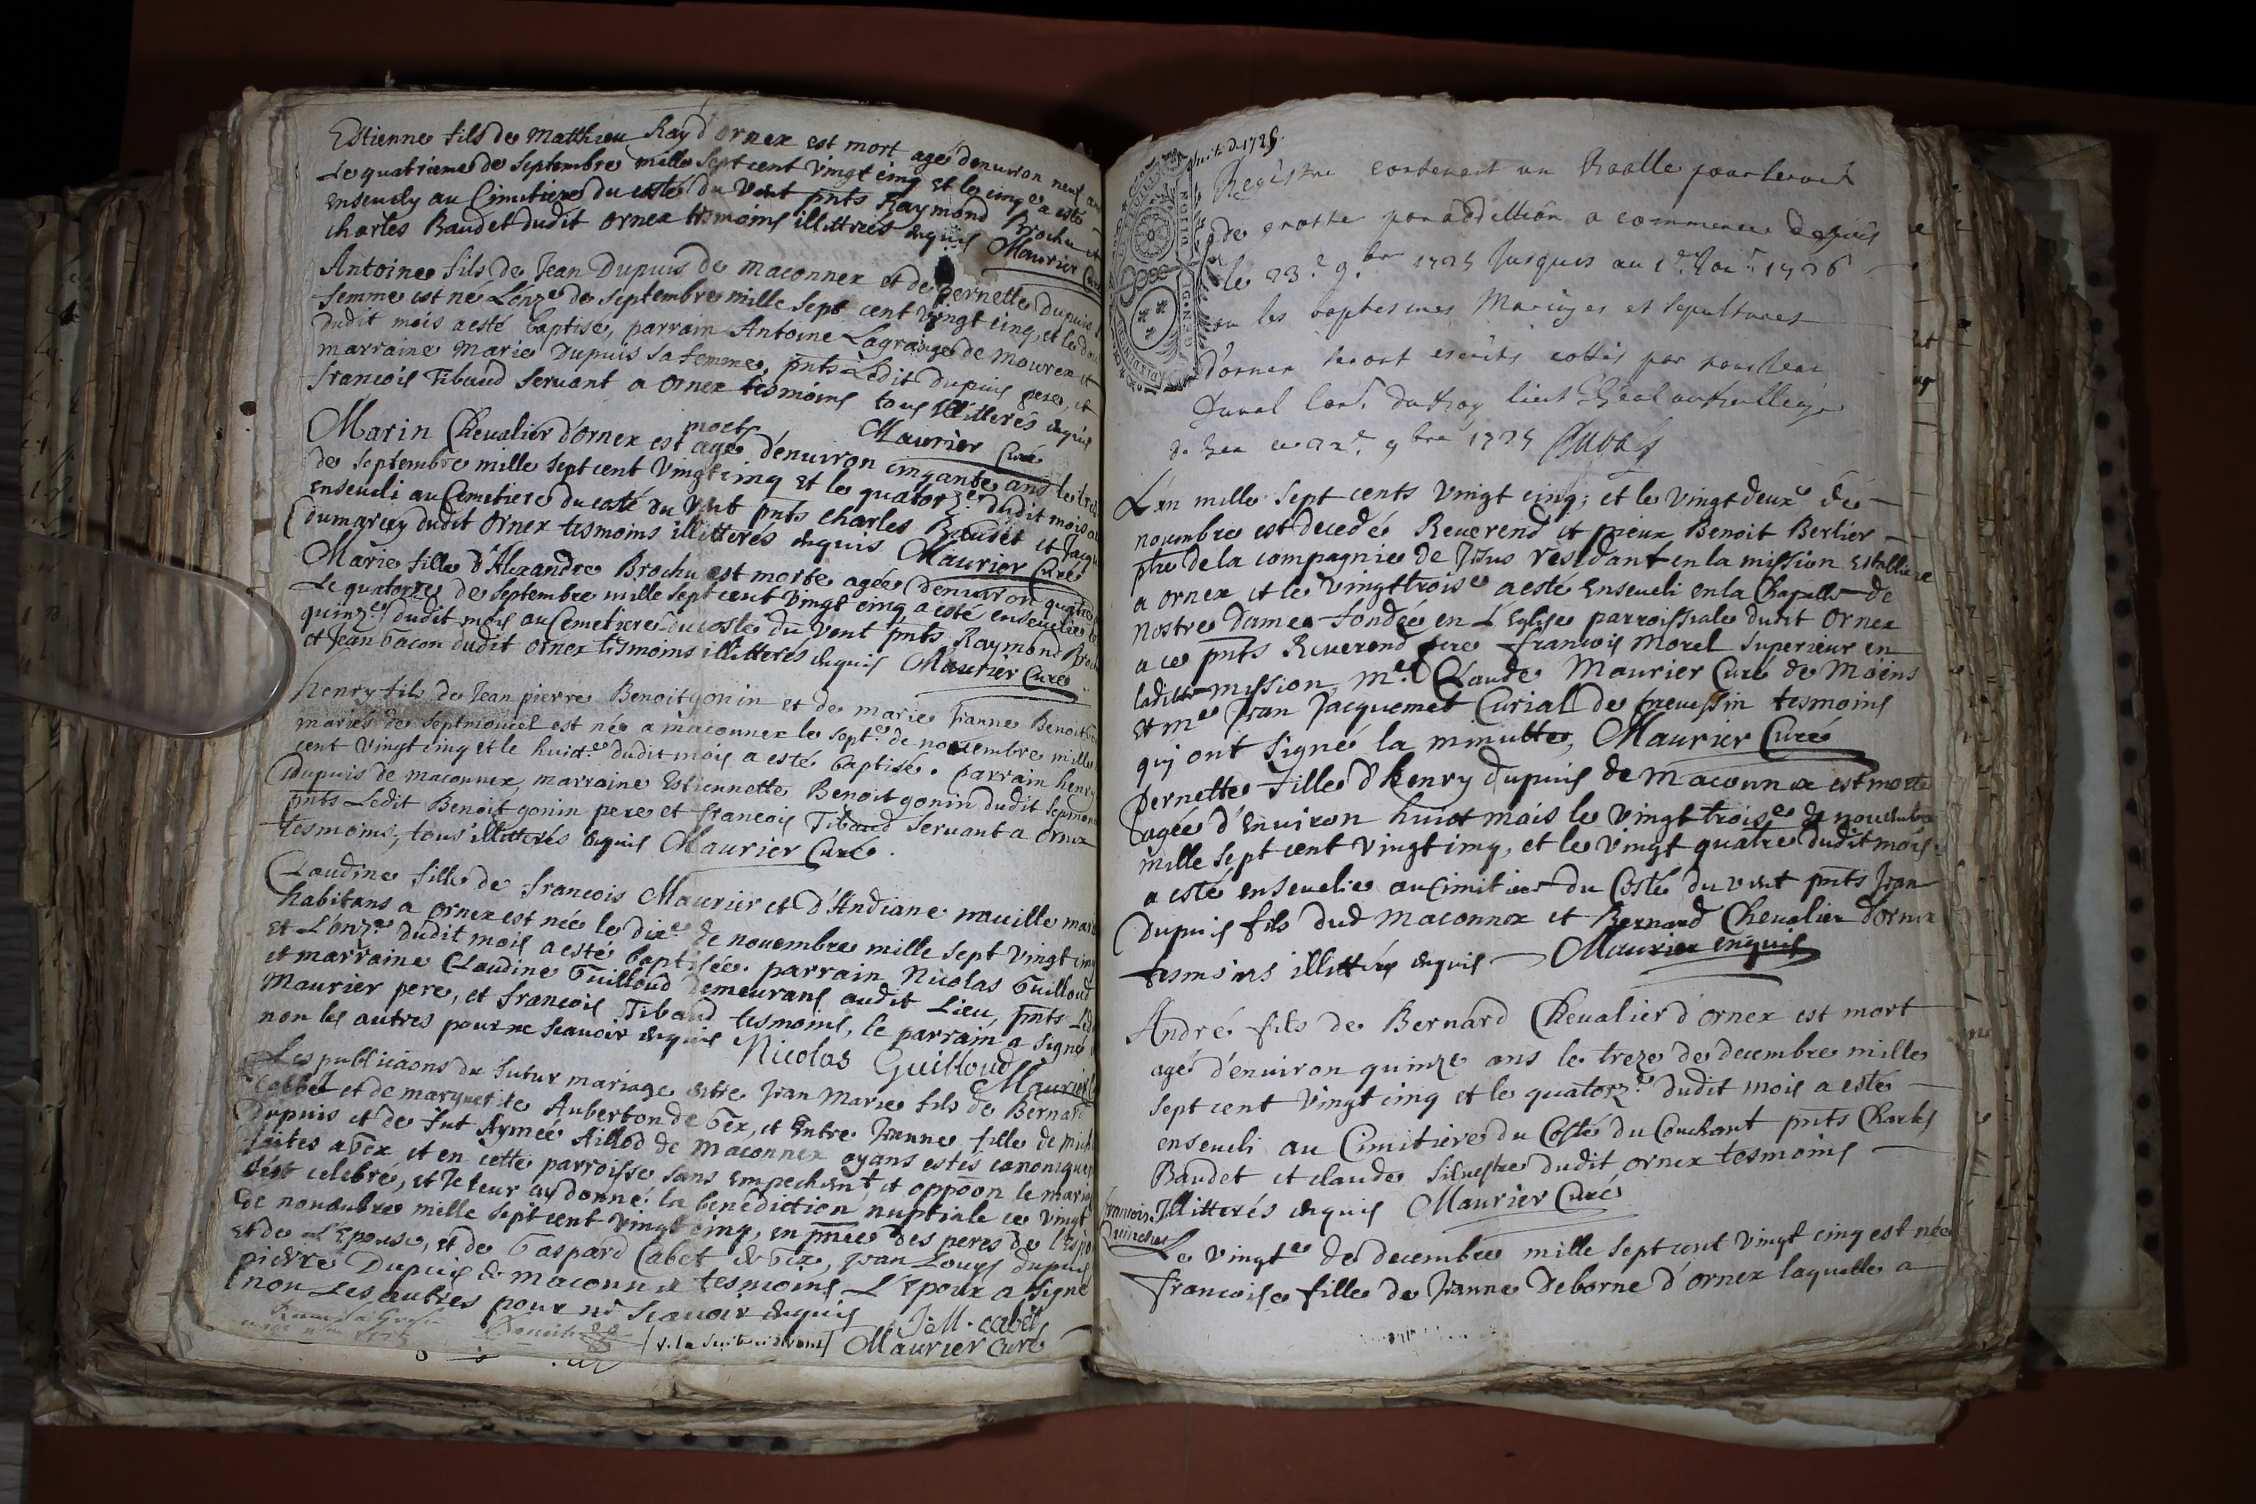 Estienne fils de Matthieu Ray d'ornex est mort agé d'enuiron neuf ans
Le quatrieme de Septembre mille Sept cent Vingt cinq Et le cinq.e a esté
enseuely au Cimitiere du costé du Vent pnts Raymond Brochu et
charles Baudet dudit ornex tesmoins illittres enquis Maurier Curé
Antoine fils de Jean Dupuis de maconnex et de pernette Dupuis sa
femme est né L'onz.e de Septembre mille Sept cent Vingt cinq, et le
dudit mois a esté baptisé, parrain Antoine Lagrange de Mourex et
marraine Marie Dupuis Sa femme, pnts Ledit Dupuis pere, et
francois Tibaud Seruant a ornex tesmoins tous illitterés enquis
Maurier Curé
mort
Marin Chevalier d'ornex est agé d'enuiron cinqante ans le
de Septembre mille sept cent Vingt cinq et le quatorz.e dudit mois a
enseueli au Cemetiere du costé du Vent pnts charles Baudet et Jacque
Dumarcey dudit ornex tesmoins illitterés enquis Maurier Curé
Marie fille d'Alexandre Brochu est morte agée d'enuiron quatre
Le quatorze de Septembre mille Sept cent Vingt cinq, a esté enseuelie le
quinz.e dudit mois au Cemetiere du coste du Vent pnts Raymond Brochu
et Jean bacon dudit ornex tesmoins illitteres enquis Maurier Curé
henry fils de Jean pierre Benoit gonin et de marie Jeanne Benoit
mariés de Septmoncel est née a maconnex le Sept.e de nouembre mille
cent Vingt cinq et le huict.e dudit mois a esté baptisé. parrain henry
Dupuis de maconnex, marraine Estiennette Benoit gonin dudit Septmoncel
pnts Ledit Benoit gonin pere et francois Tibaud Seruant a ornex
tesmoins, tous illitterés enquis Maurier Curé.
Claudine fille de francois Maurier et d'Andiane nauille mariés
habitans a ornex est née le dix.e de nouembre mille sept Vingt cinq
et L'onz.e dudit mois a esté baptisée. parrain Nicolas Guilloud
et marraine Claudine Guilloud demeurans audit Lieu, pnts Ledit
Maurier pere, et francois Tibaud tesmoins, le parrain a signé
non les autres pour ne scauoir enquis Nicolas Guilloud
Maurier
Les publicãons du futur mariage entre Jean Marie fils de Bernard
Cabbet et de marguerite Auberton de Gex, et Entre Jeanne fille de
Dupuis et de fut Aymée Aillod de Maconnex ayans estés canoniquem
faites a Gex, et en cette parroisse sans empechem.t et oppõon le mariage
s'est celebré, et Je leur ay donné la benediction nuptiale ce Vingt
de nouembre mille Sept cent Vingt cinq, en pnce des peres de l'Espoux
et de L'Epouse, et de Gaspard Cabet de Gex, Jean Louys Dupuis
pierre Dupuis de maconnex tesmoins L'Epoux a Signé
non Les autres pour ne Scauoir enquis
J: M. cabet
[v. la Suite cy devant] Maurier Curé
Suite de 1725.
Registre contenant un Roolle pour servir
de grosse par addition a commencer depuis
le 23.e 9.bre 1725 Jusques au 1.er Jan.r 1726
ou les baptesmes Mariages et Sepultures
d'ornex seront escrits cottés par nous
Duval Con.r du Roy Lieut. Gñeral au bailliage
de Gex ce 22.e 9bre 1725 Duval
L'an mille Sept cents Vingt cinq; et le Vingt deux.e de
nouembre est decedé Reuerend et pieux Benoit Berlier
ptre de la compagnie de Jesus residant en la mission Establie
a ornex et le Vingt trois.e a esté Enseueli en la Chapelle de
Nostre Dame fondée en L'Eglise parroissiale dudit Ornex
a ce pnts Reuerend pere francois Morel Superieur en
ladite mission, M.e Claude Maurier Curé de Moëns
et m.e Jean Jacquemet Curial de preuessin tesmoins
qui ont Signé la minutte, Maurier Curé
Pernette fille d'henry Dupuis de Maconnex est morte
agée d'enuiron huict mois le Vingt trois.e de nouembre
mille Sept cent Vingt cinq, et le Vingt quatre dudit mois
a esté enseuelie au Cimitiere du Costé du vent pnts Jean
Dupuis fils dud Maconnex et Bernard Cheualier d'ornex
tesmoins illitterés enquis Maurier enquis
André fils de Bernard Cheualier d'ornex est mort
agé d'enuiron quinze ans le treze de decembre mille
Sept cent Vingt cinq et le quatorz.e dudit mois a esté
enseueli au Cimitiere du Costé du Couchant pnts Charles
Baudet et claude Siluestre dudit ornex tesmoins
Illitterés enquis Maurier Curé
francoise
Le Vingt.e de decembre mille Sept cent Vingt cinq est née
francoise fille de Jeanne Deborne d'ornex laquelle a